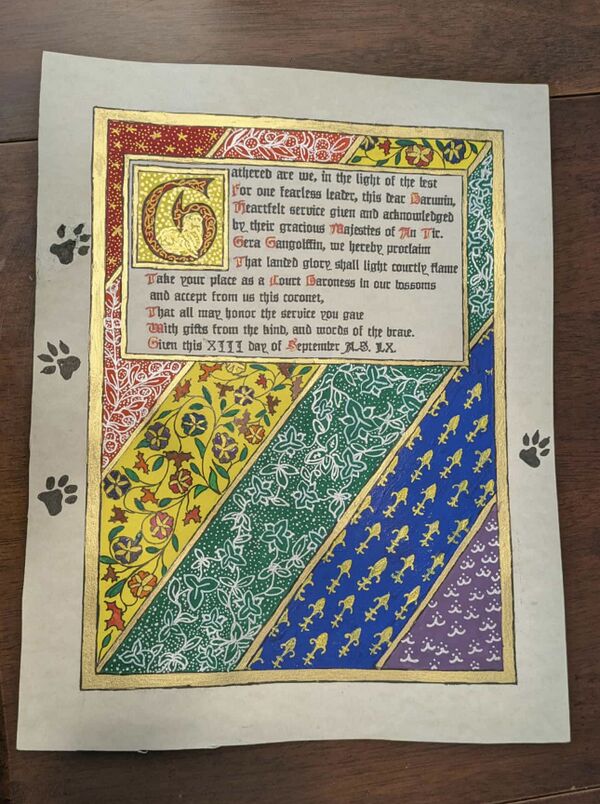 Gathered are we, in the light of the best
For one fearless leader, this dear Darwin,
Heartfelt service given and acknowledged
by their gracious Majesties of An Tir.
Gera Gangolffin, we hereby proclaim
That landed glory shall light courtly flame
Take your place as a Court Baroness in our bossoms
and accept from us this coronet,
That all may honor the service you gave
With gifts from the kind, and words of the brave.
Given this XIII day of September A.S. LX.